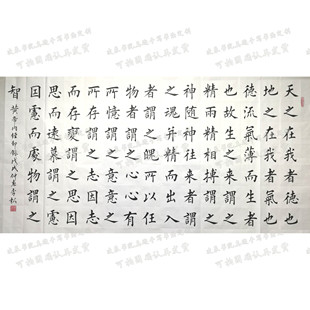 天之在我者德也
地之在我者氣也
德流氣薄而生者
也故生之來謂之
精兩精相搏謂之
神隨神往來者謂
之魂并精而出入
者謂之魄所以任
物者謂之心心有
所憶謂之意意之
所存謂之志因志
而存變謂之思因
思而遠慕謂之慮
因慮而處物謂之
智 黄帝内經節錄戊戌